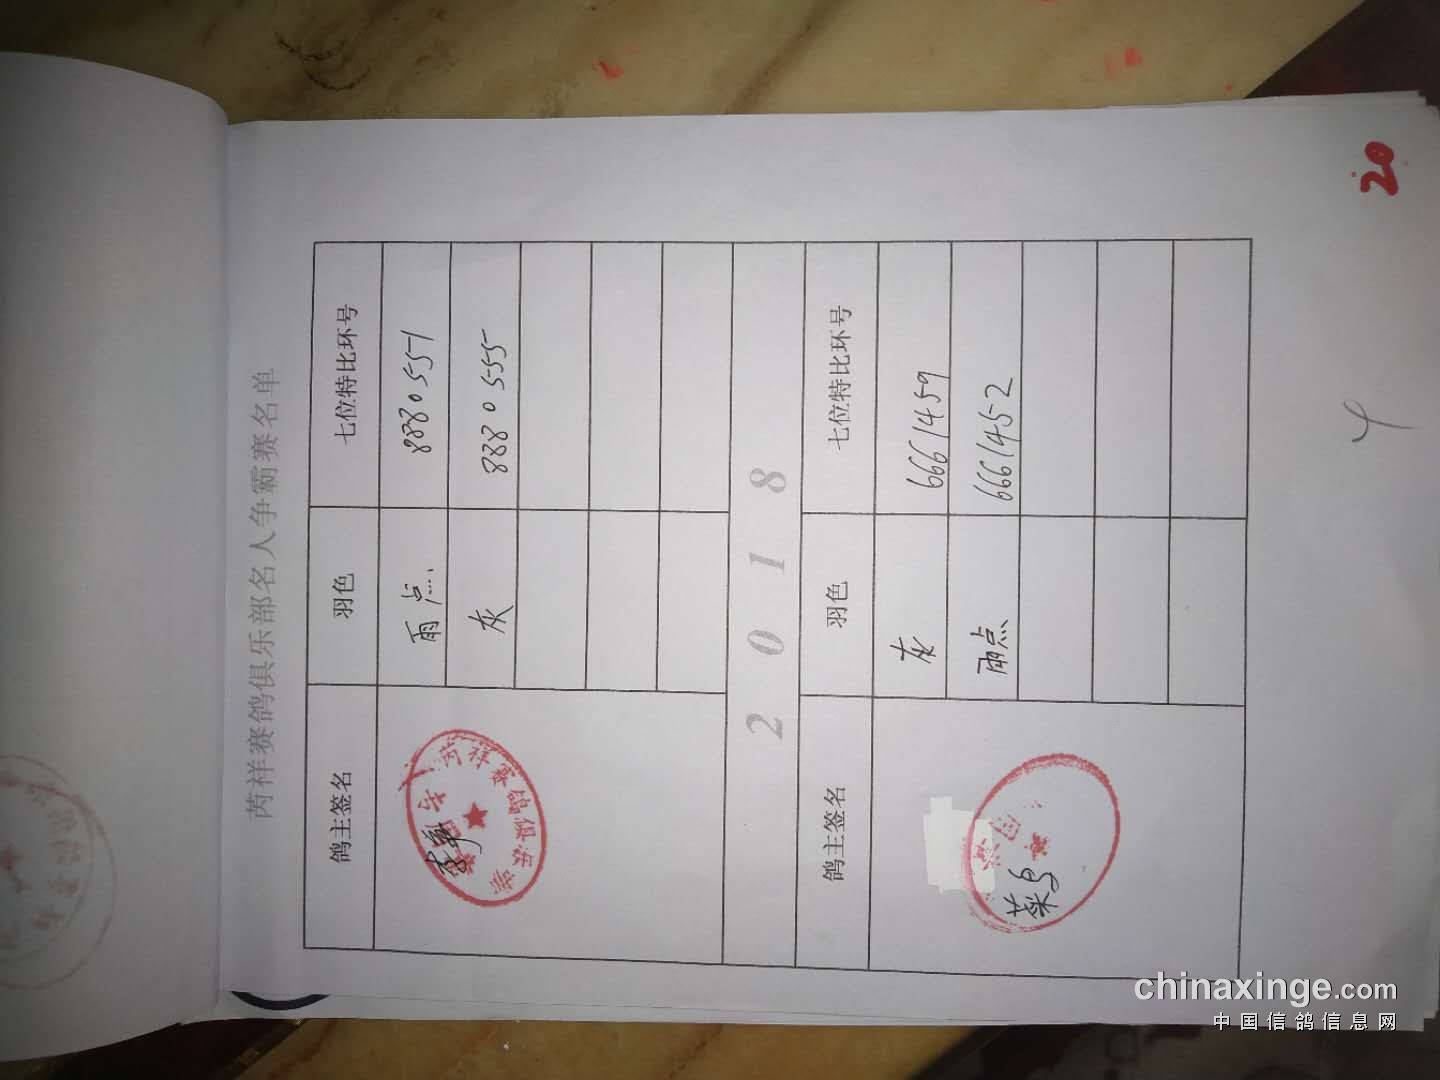 芮祥赛鸽俱乐部名人争霸赛名单
鸽主签名 羽色 七位特比环号
雨点 8880551
灰 8880555
芮祥赛鸽俱乐部
2018
鸽主签名 羽色 七位特比环号
灰 6661459
雨点 6661452
20
chinaxinge.com
中国信鸽信息网